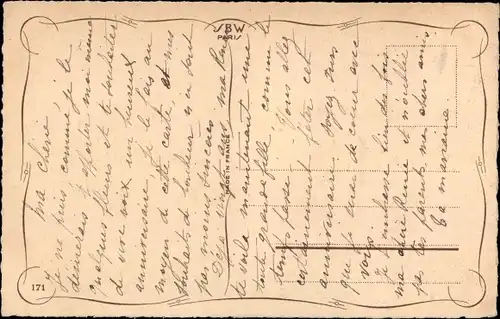 SBW
PARIS
MADE IN FRANCE
171
ma chérie,
Je ne puis comme je le
désirerais t'apporter moi même
quelques fleurs et te souhaiter
de vive voix un heureux
anniversaire je le fais au
moyen de cette carte, et mes
souhaits de bonheur n'en sont
pas moins sincères
Déjà vingt ans ma
te voilà maintenant une
toute grande fille, comme le
temps passe Vous allez
certainement fêter cet
anniversaire, soyez sûrs
que je suis de coeur avec
vous.
Je t'embrasse bien des fois
ma et n'oublie
pas tes parents, mes chers amis
Ta marraine